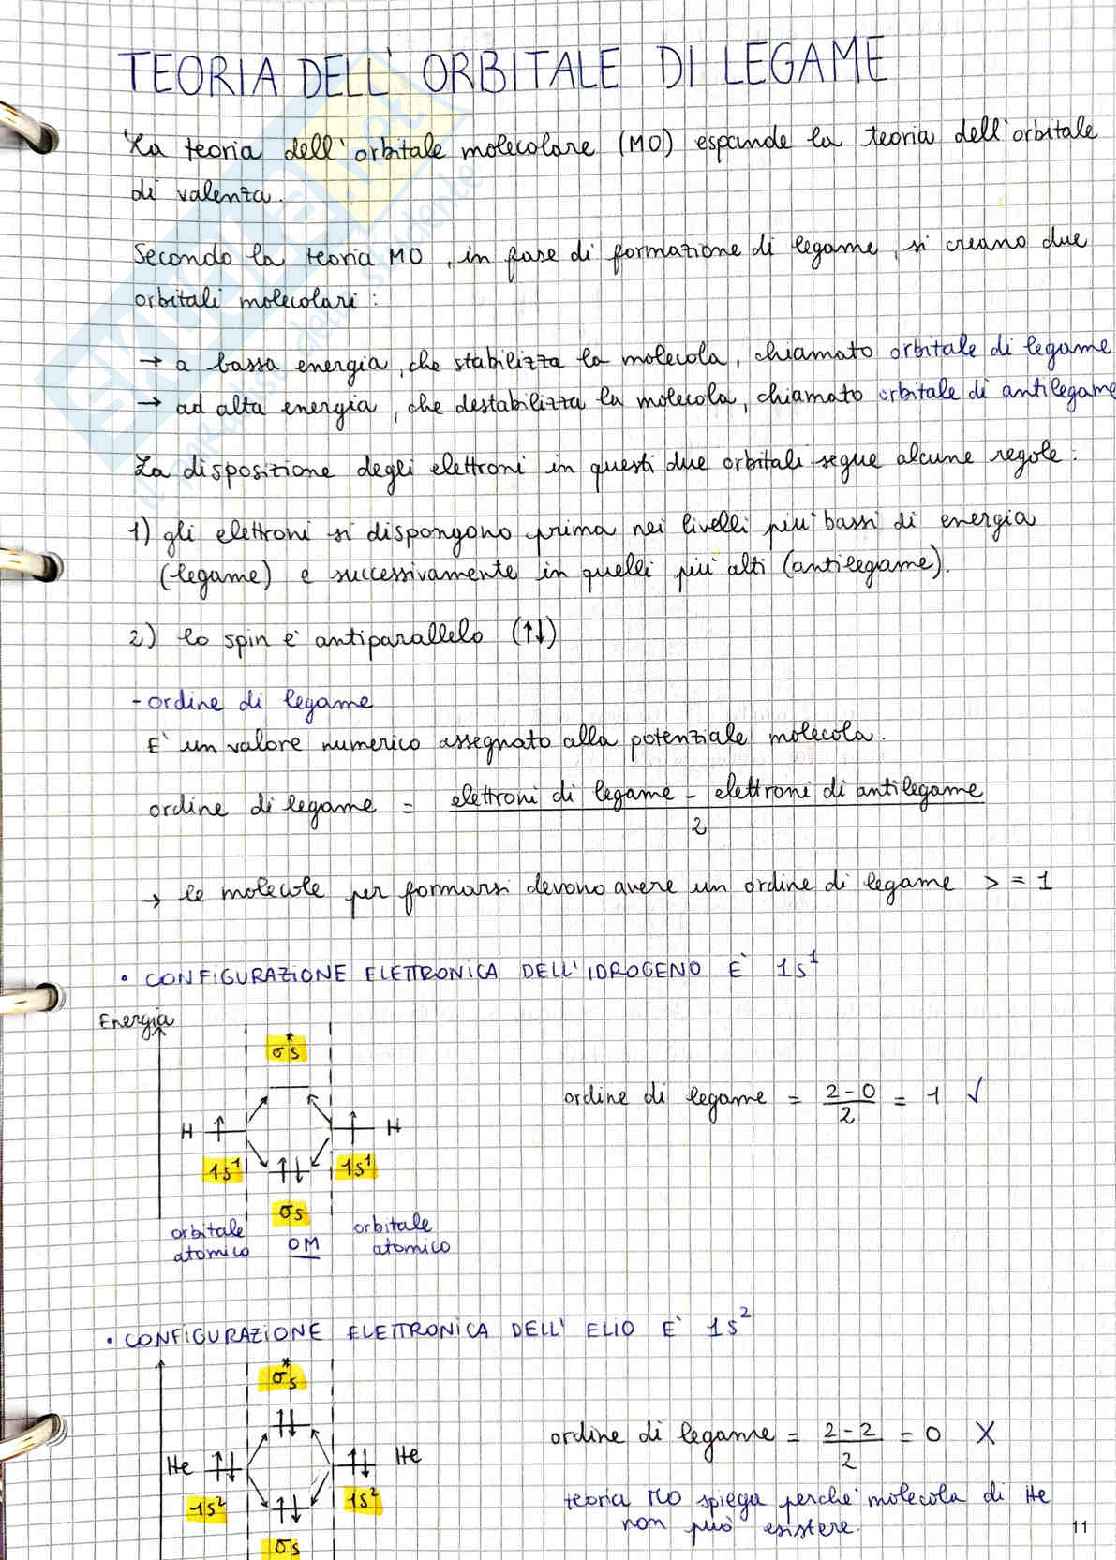 TEORIA DELL' ORBITALE DI LEGAME
La teoria dell'orbitale molecolare (MO) espande la teoria dell'orbitale
di valenza.
Secondo la teoria MO, in fase di formazione di legame, si creano due
orbitali molecolari:
→ a bassa energia, che stabilizza la molecola, chiamato orbitale di legame
→ ad alta energia, che destabilizza la molecola, chiamato orbitale di antilegame
La disposizione degli elettroni in questi due orbitali segue alcune regole:
1) gli elettroni si dispongono prima nei livelli più bassi di energia
(legame) e successivamente in quelli più alti (antilegame).
2) lo spin è antiparallelo (↑↓)
- ordine di legame
E' un valore numerico assegnato alla potenziale molecola.
ordine di legame = elettroni di legame - elettroni di antilegame
2
→ le molecole per formarsi devono avere un ordine di legame > = 1
• CONFIGURAZIONE ELETTRONICA DELL'IDROGENO E' 1s¹
Energia
σ*s
ordine di legame = 2-0/2 = 1 √
H ↑ ↑ H
1s¹ ↑↓ 1s¹
σs
orbitale atomico OM orbitale atomico
• CONFIGURAZIONE ELETTRONICA DELL' ELIO E' 1s²
σ*s
↑↓
ordine di legame = 2-2/2 = 0 X
He ↑↓ ↑↓ He
1s² ↑↓ 1s²
σs
teoria MO spiega perché molecola di He
non può esistere.
11